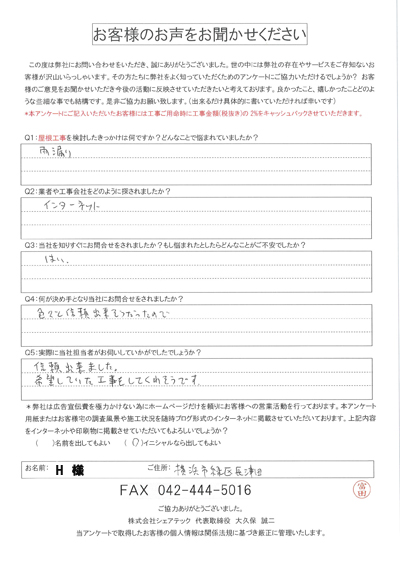 お客様のお声をお聞かせください
この度は弊社にお問い合わせをいただき、誠にありがとうございました。世の中には弊社の存在やサービスをご存知ないお
客様が沢山いらっしゃいます。その方たちに弊社をよく知っていただくためのアンケートにご協力いただけるでしょうか? お客
様のご意見をお聞かせいただき今後の活動に反映させていただきたいと考えております。良かったこと、嬉しかったことどの
ような些細な事でも結構です。是非ご協力お願い致します。(出来るだけ具体的に書いていただければ幸いです)
*本アンケートにご記入いただいたお客様には工事ご用命時に工事金額(税抜き)の2%をキャッシュバックさせていただきます。
Q1:屋根工事を検討したきっかけは何ですか?どんなことで悩まれていましたか?
雨漏り
Q2:業者や工事会社をどのように探されましたか?
インターネット
Q3:当社を知りすぐにお問合せをされましたか?もし悩まれたとしたらどんなことがご不安でしたか?
はい、
Q4:何が決め手となり当社にお問合せをされましたか?
色々と信頼出来そうだったので
Q5:実際に当社担当者がお伺いしていかがでしたでしょうか?
信頼出来ました。
希望していた工事をしてくれそうです
*弊社は広告宣伝費を極力かけない為にホームページだけを頼りにお客様への営業活動を行っております。本アンケート
用紙またはお客様宅の調査風景や施工状況を随時ブログ形式のインターネットに掲載させていただいております。上記内容
をインターネットや印刷物に掲載させていただいてもよろしいでしょうか?
( )名前を出してもよい (○)イニシャルなら出してもよい
お名前: H 様 ご住所: 横浜市緑区長津田
FAX 042-444-5016
ご協力ありがとうございました。
株式会社シェアテック 代表取締役 大久保 誠二
当アンケートで取得したお客様の個人情報は関係法規に基づき厳正に管理いたします。